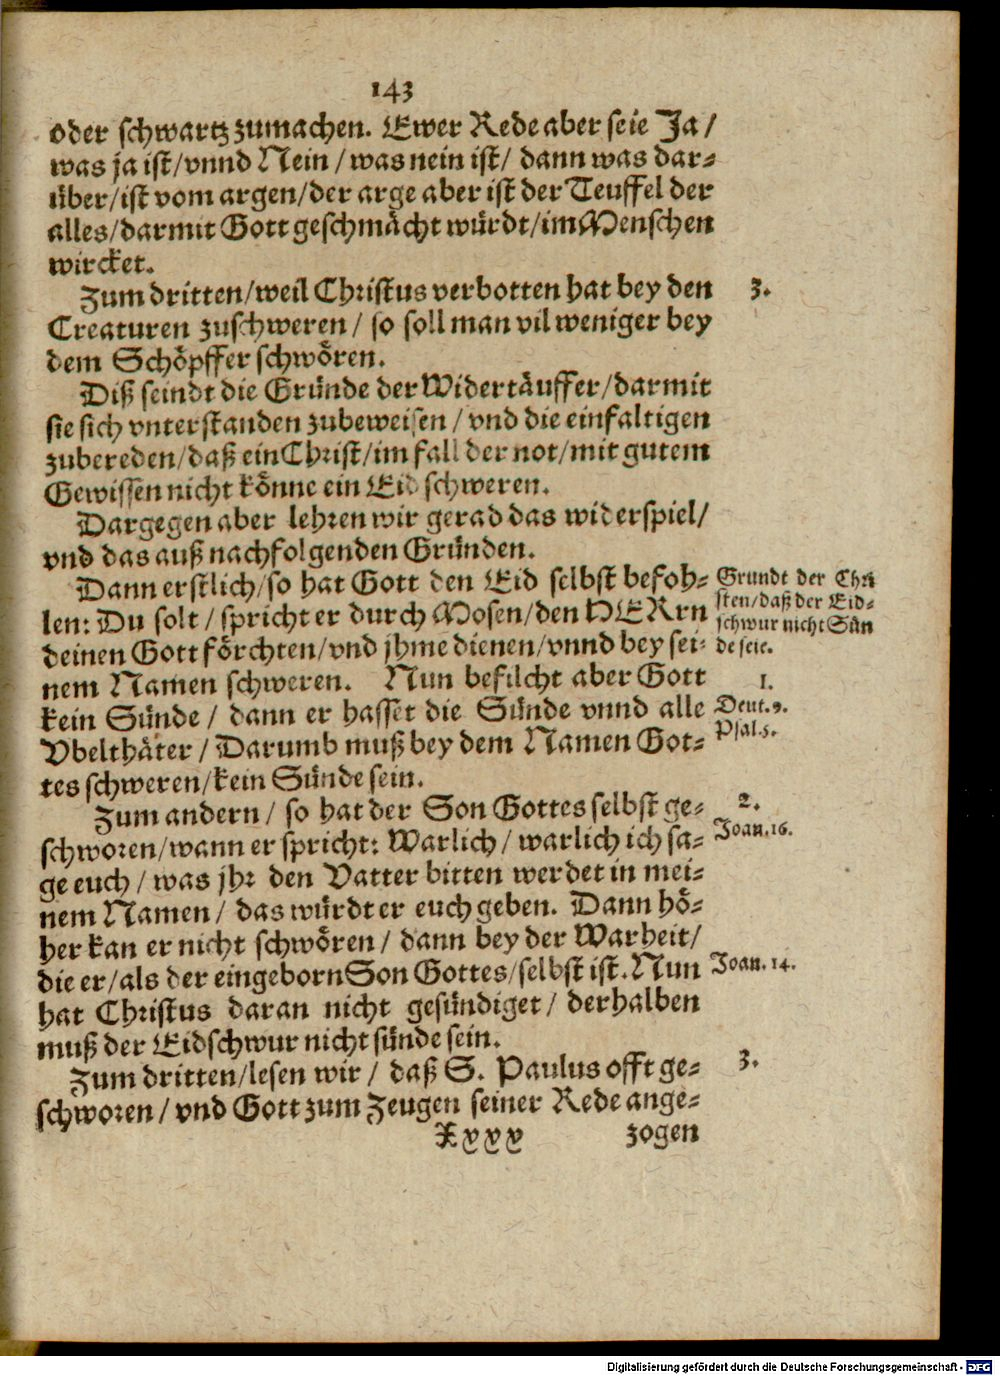 143
oder schwartz zumachen. Ewer Rede aber seie Ja/
was ja ist/vnnd Nein/was nein ist/ dann was dar⸗
über/ist vom argen/der arge aber ist der Teuffel der
alles/darmit Gott geschmächt würdt/im Menschen
wircket.
Zum dritten/weil Christus verbotten hat bey den
3.
Creaturen zuschweren/ so soll man vil weniger bey
dem Schöpffer schwören.
Diß seindt die Gründe der Widertäuffer/darmit
sie sich vnterstanden zubeweisen/vnd die einfaltigen
zubereden/daß ein Christ/im fall der not/mit gutem
Gewissen nicht könne ein Eid schweren.
Dargegen aber lehren wir gerad das widerspiel/
vnd das auß nachfolgenden Gründen.
Dann erstlich/so hat Gott den Eid selbst befoh⸗
len: Du solt/ spricht er durch Mosen/den HERrn
deinen Gott förchten/vnd jhme dienen/vnnd bey sei⸗
nem Namen schweren. Nun befilcht aber Gott
kein Sünde/ dann er hasset die Sünde vnnd alle
Vbelthäter/Darumb muß bey dem Namen Got⸗
tes schweren/kein Sünde sein.
Grundt der Chri
sten/daß der Eid⸗
schwur nicht Sün
de seie.
1.
Deut.9.
Psal.5.
Zum andern/ so hat der Son Gottes selbst ge⸗
schworen/wann er spricht: Warlich/ warlich ich sa⸗
ge euch/was jhr den Vatter bitten werdet in mei⸗
nem Namen/ das würdt er euch geben. Dann hö⸗
her kan er nicht schwören/ dann bey der Warheit/
die er/als der eingeborn Son Gottes/selbst ist. Nun
hat Christus daran nicht gesündiget/ derhalben
muß der Eidschwur nicht sünde sein.
2.
Joan.16.
Joan.14.
Zum dritten/lesen wir/ daß S. Paulus offt ge⸗
3.
schworen/vnd Gott zum Zeugen seiner Rede ange⸗
Xxxx zogen
Digitalisierung gefördert durch die Deutsche Forschungsgemeinschaft - DFG